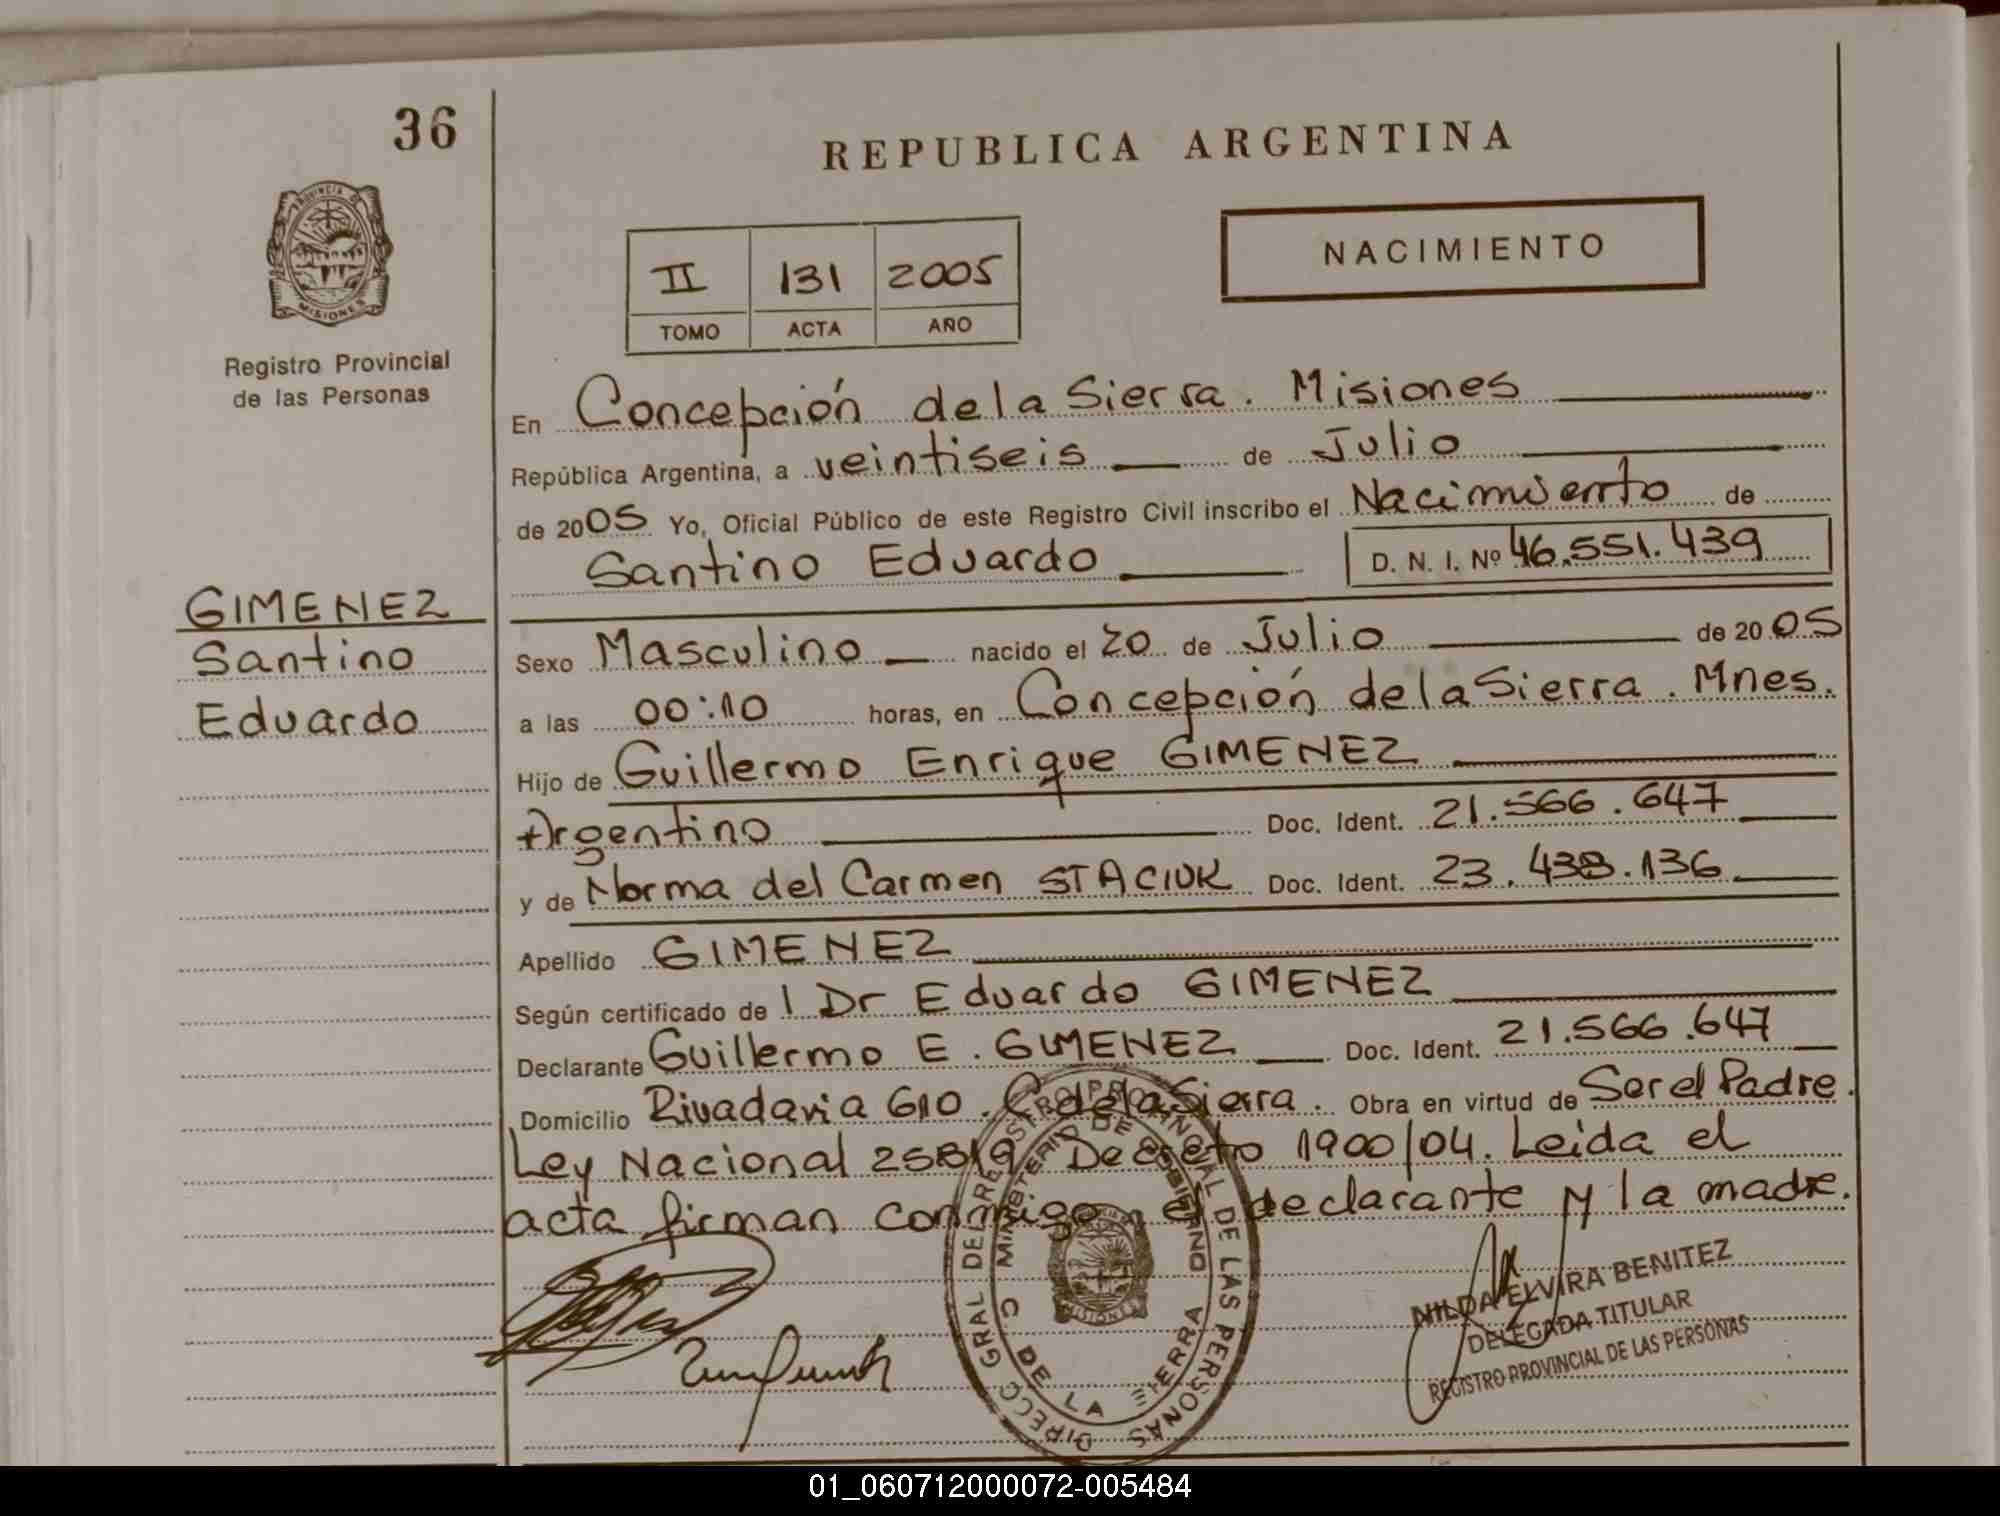 36
REPUBLICA ARGENTINA
PROVINCIA DE
MISIONES
Registro Provincial
de las Personas
II 131 2005
TOMO ACTA AÑO
NACIMIENTO
En Concepción de la Sierra. Misiones
República Argentina, a veintiseis de Julio
de 2005 Yo, Oficial Público de este Registro Civil inscribo el Nacimiento de
Santino Eduardo D. N. I. Nº 46.551.439
GIMENEZ
Santino
Eduardo
Sexo Masculino nacido el 20 de Julio de 2005
a las 00:10 horas, en Concepción de la Sierra. Mnes.
Hijo de Guillermo Enrique GIMENEZ
Argentino Doc. Ident. 21.566.647
y de Norma del Carmen STACIUK Doc. Ident. 23.438.136
Apellido GIMENEZ
Según certificado de l Dr Eduardo GIMENEZ
Declarante Guillermo E. GIMENEZ Doc. Ident. 21.566.647
Domicilio Rivadavia 610. C de la Sierra. Obra en virtud de Ser el Padre.
Ley Nacional 25819 Decreto 1900/04. Leida el
acta firman conmigo, el declarante y la madre.
DIRECC GRAL DE REGISTRO PROVINCIAL DE LAS PERSONAS
MINISTERIO DE GOBIERNO
C DE LA SIERRA
MISIONES
NILDA ELVIRA BENITEZ
DELEGADA TITULAR
REGISTRO PROVINCIAL DE LAS PERSONAS
01_060712000072-005484